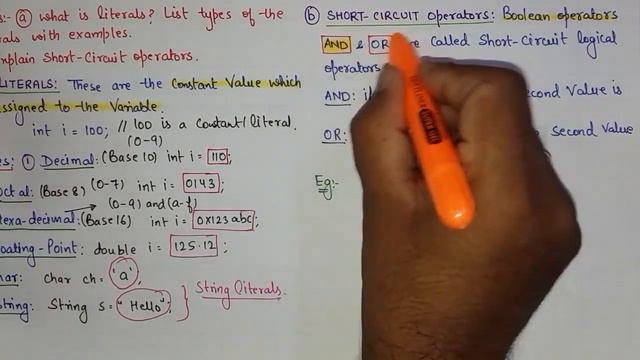 ⓐ what is literals? List types of the
als with examples.
xplain Short-Circuit operators.
LITERALS: These are the Constant Value which
assigned to the Variable.
int i = 100; // 100 is a constant/literal.
(0-9)
es: ① Decimal: (Base 10) int i = 110;
Octal: (Base 8) (0-7) int i = 0143;
(0-9) and (a-f)
exa-decimal: (Base 16) int i = 0x123abc;
oating-Point: double i = 125.12;
har: char ch = 'a'
String: String s = "Hello"; } String literals.
ⓑ SHORT-CIRCUIT Operators: Boolean operators
AND & OR are called Short-Circuit logical
operators
AND: second Value is
OR: second Value
Eg:-